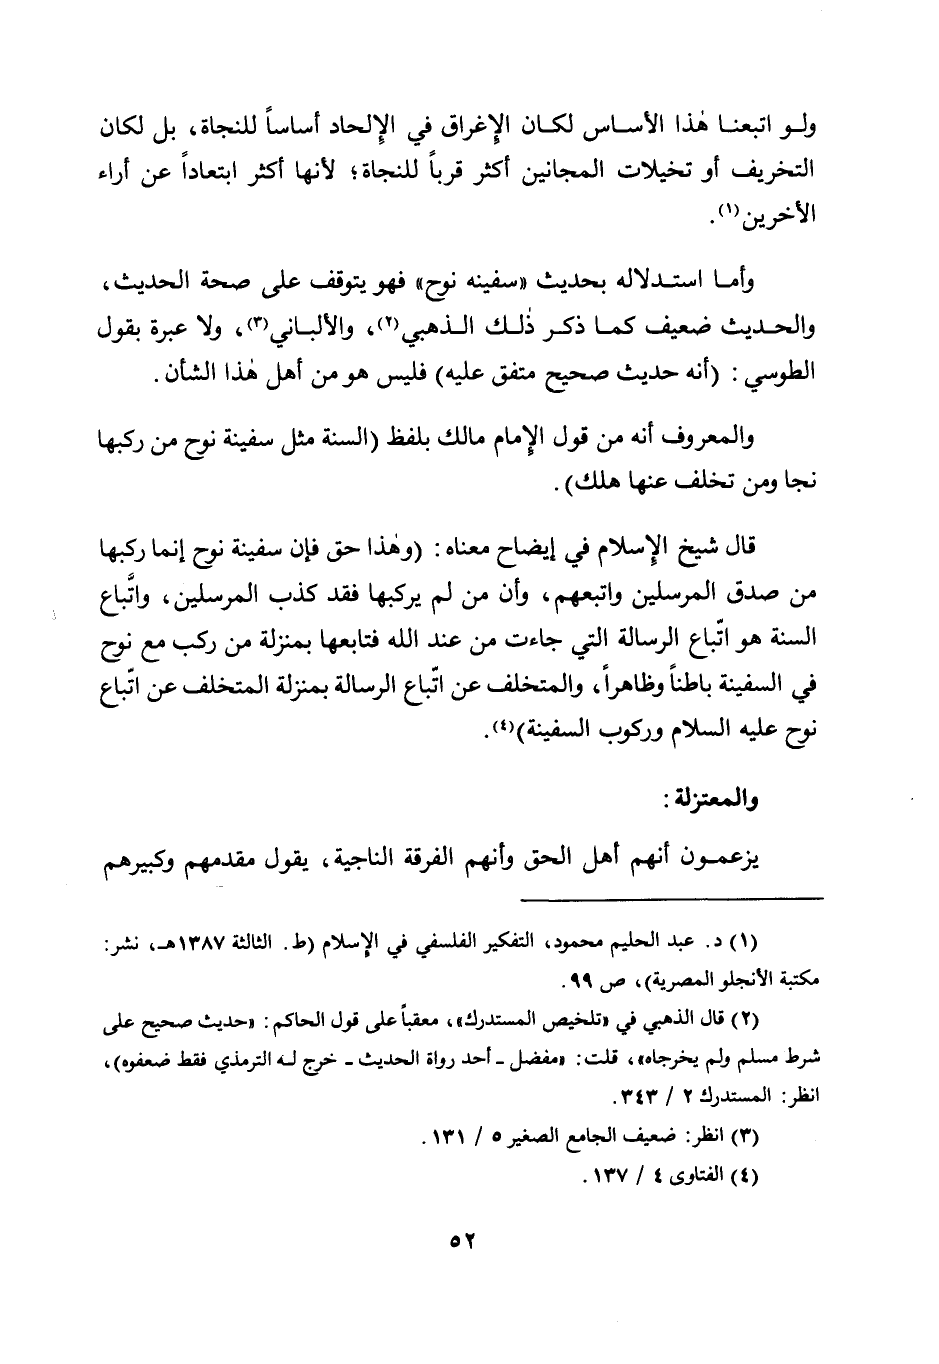 ولو اتبعنا هٰذا الأساس لكان الإغراق في الإلحاد أساساً للنجاة، بل لكان
التخريف أو تخيلات المجانين أكثر قرباً للنجاة؛ لأنها أكثر ابتعاداً عن أراء
الأخرين(١).
وأما استدلاله بحديث «سفينه نوح» فهو يتوقف على صحة الحديث،
والحديث ضعيف كما ذكر ذٰلك الذهبي(٢)، والألباني(٣)، ولا عبرة بقول
الطوسي: (أنه حديث صحيح متفق عليه) فليس هو من أهل هٰذا الشأن.
والمعروف أنه من قول الإمام مالك بلفظ (السنة مثل سفينة نوح من ركبها
نجا ومن تخلف عنها هلك).
قال شيخ الإسلام في إيضاح معناه: (وهٰذا حق فإن سفينة نوح إنما ركبها
من صدق المرسلين واتبعهم، وأن من لم يركبها فقد كذب المرسلين، واتَّباع
السنة هو اتّباع الرسالة التي جاءت من عند الله فتابعها بمنزلة من ركب مع نوح
في السفينة باطناً وظاهراً، والمتخلف عن اتّباع الرسالة بمنزلة المتخلف عن اتّباع
نوح عليه السلام وركوب السفينة)(٤).
والمعتزلة:
يزعمون أنهم أهل الحق وأنهم الفرقة الناجية، يقول مقدمهم وكبيرهم
(١) د. عبد الحليم محمود، التفكير الفلسفي في الإسلام (ط. الثالثة ١٣٨٧هـ، نشر:
مكتبة الأنجلو المصرية)، ص ٩٩.
(٢) قال الذهبي في «تلخيص المستدرك»، معقباً على قول الحاكم: «حديث صحيح على
شرط مسلم ولم يخرجاه»، قلت: «مفضل ـ أحد رواة الحديث ـ خرج له الترمذي فقط ضعفوه)،
انظر: المستدرك ٢ / ٣٤٣.
(٣) انظر: ضعيف الجامع الصغير ٥ / ١٣١.
(٤) الفتاوى ٤ / ١٣٧.
٥٢